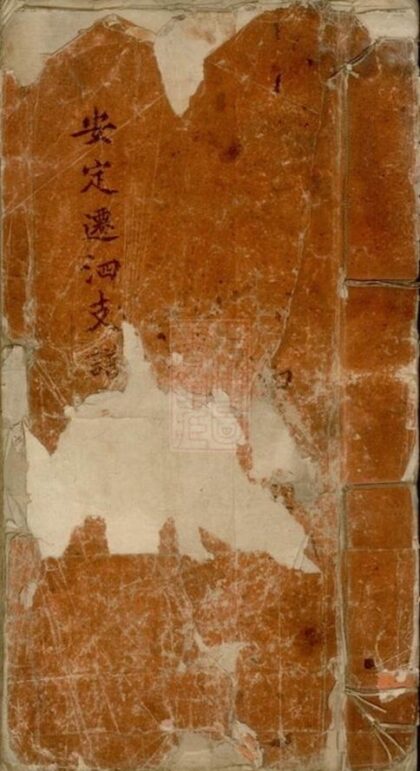 安定遷泗支譜